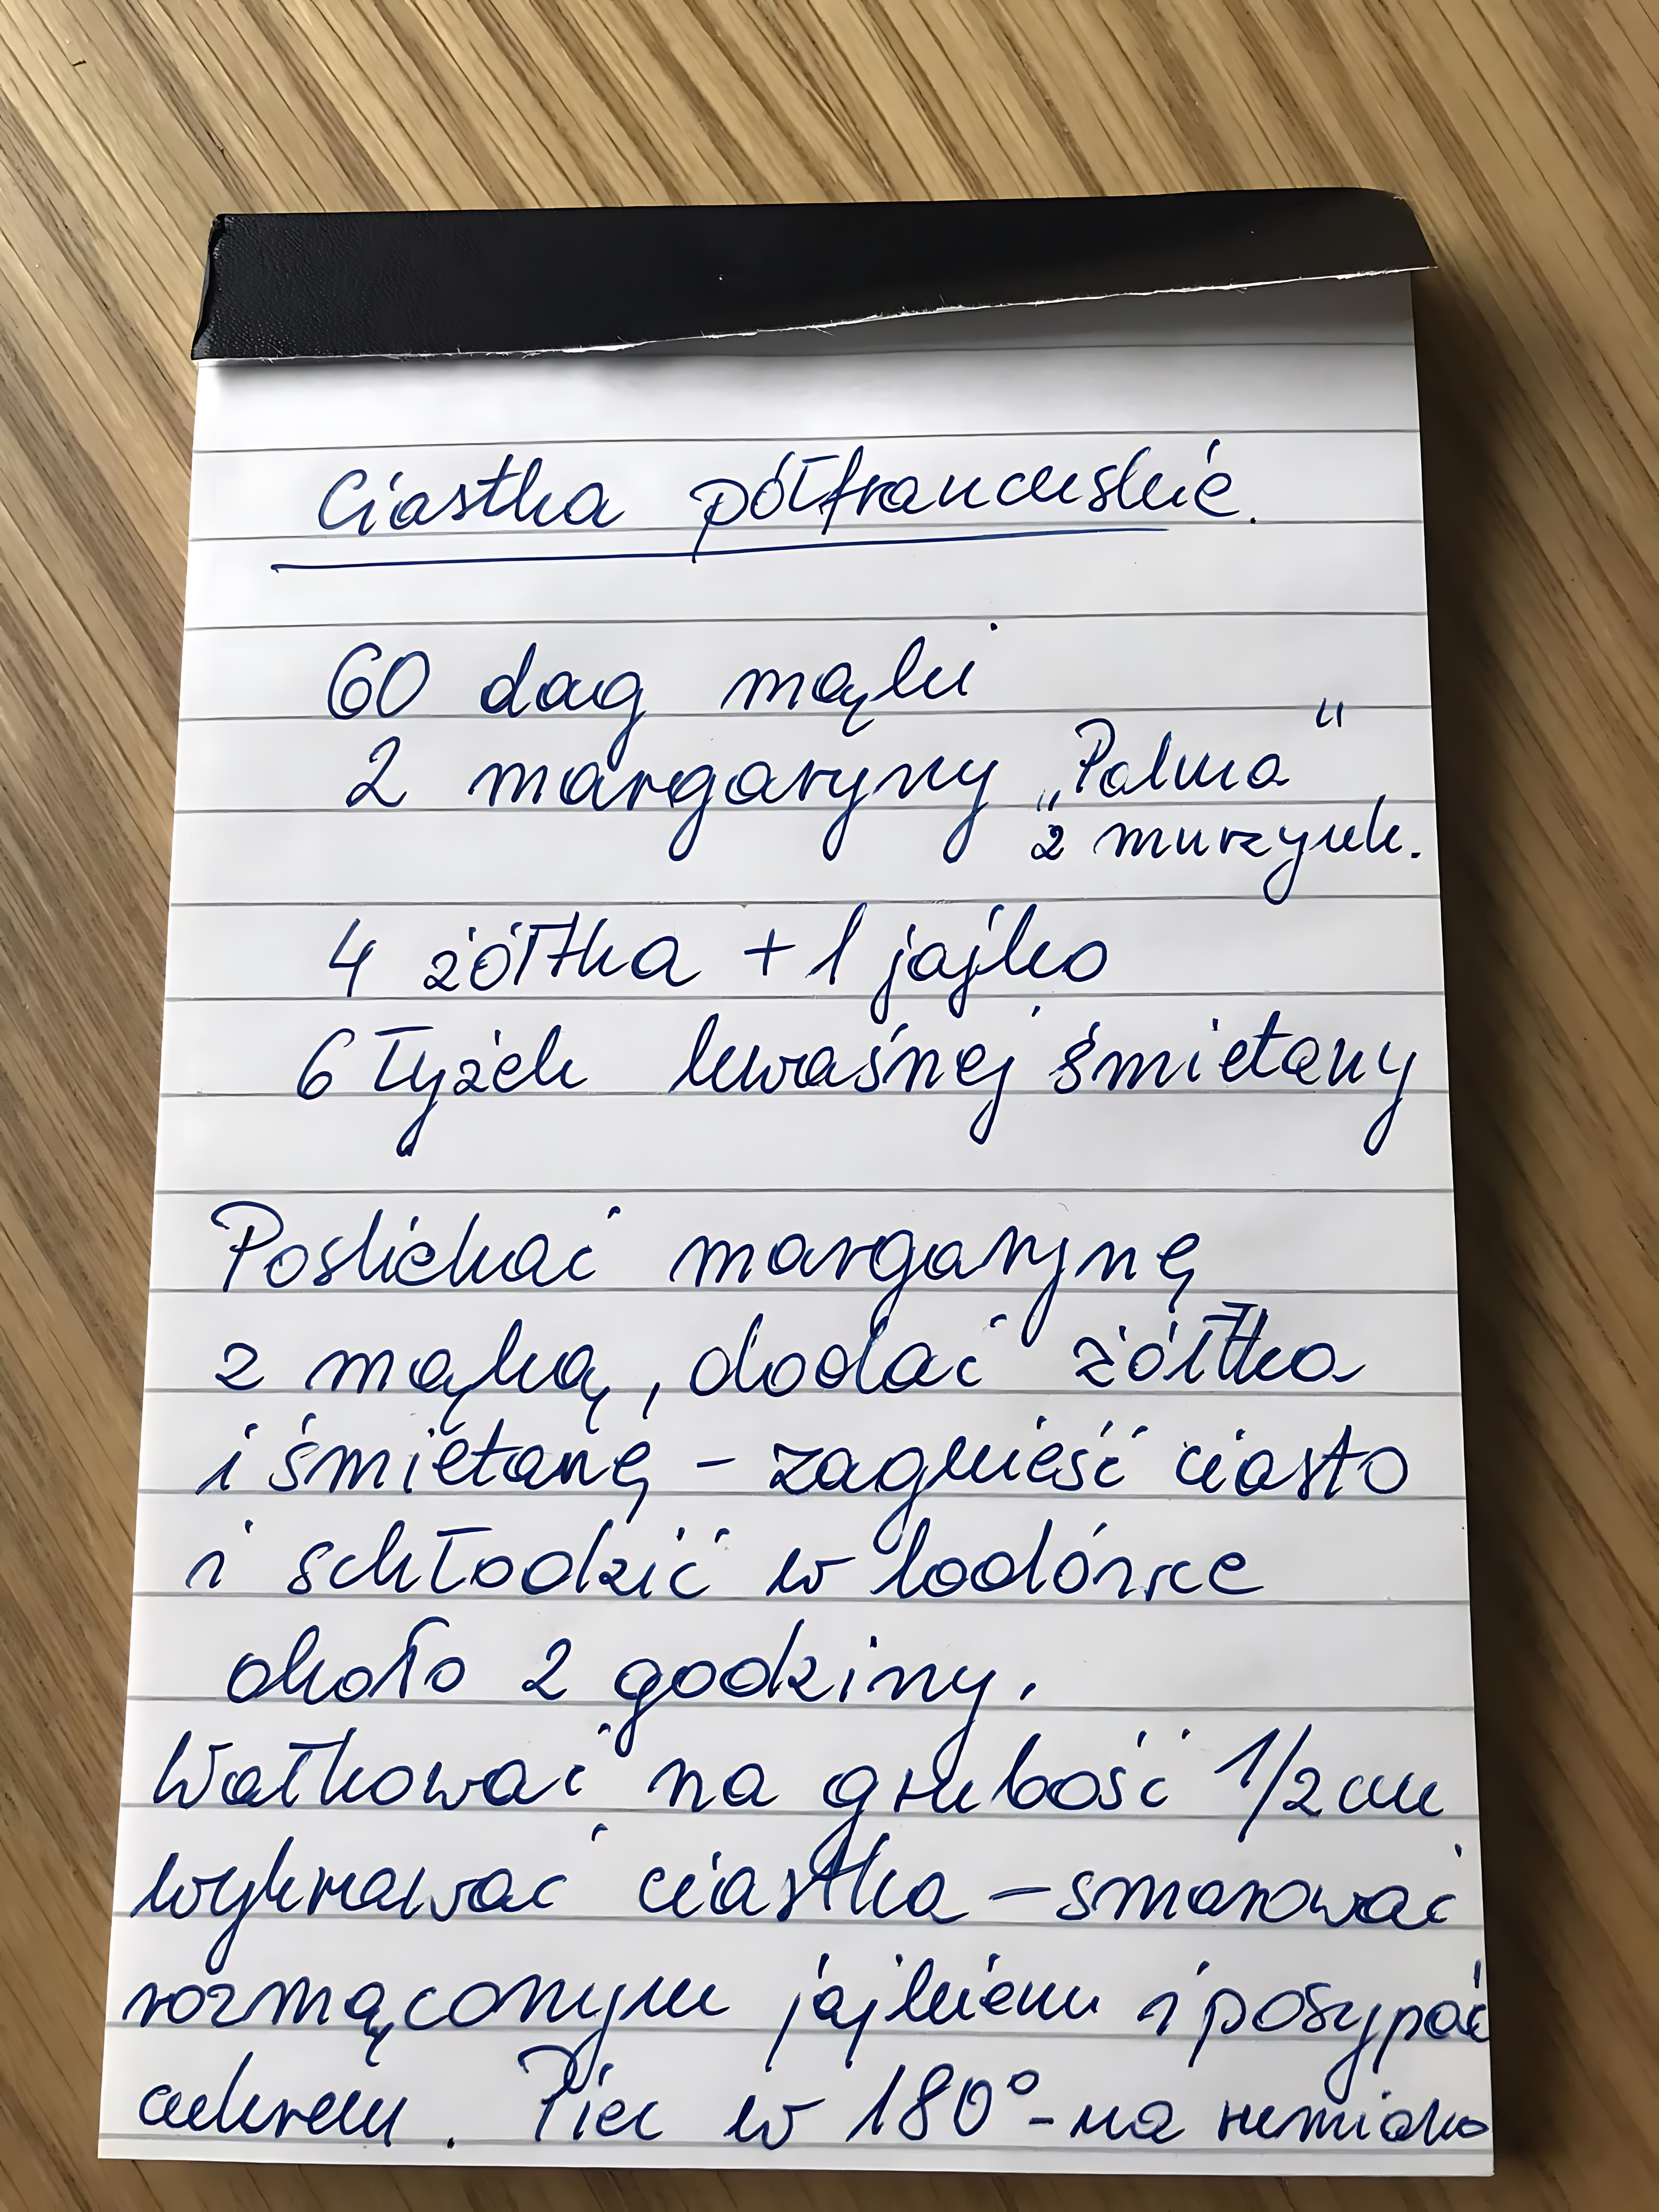 Ciastka półfrancuskie.
60 dag mąki
2 margaryny „Palma"
z murzynk.
4 żółtka + 1 jajko
6 łyżek kwaśnej śmietany
Posiekać margarynę
z mąką, dodać żółtka
i śmietanę - zagnieść ciasto
i schłodzić w lodówce
około 2 godziny.
Wałkować na grubość 1/2 cm
wykrawać ciastka - smarować
rozmąconym jajkiem i posypać
cukrem. Piec w 180° - na rumiano